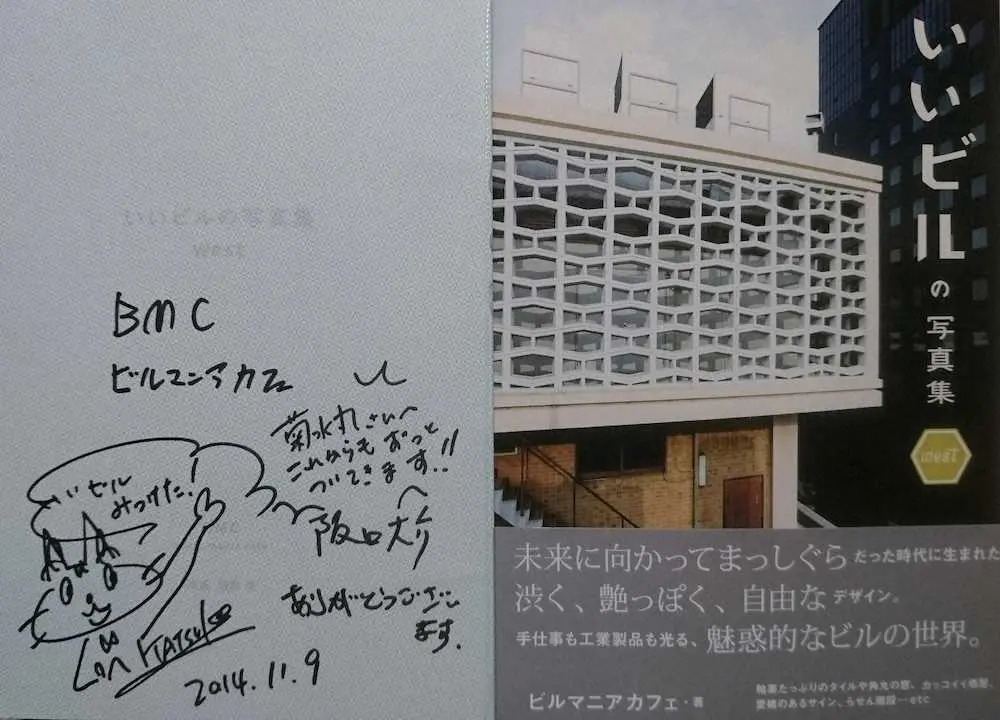 いいビルの写真集
west
BMC
ビルマニアカフェ
菊水丸さんへ
これからもずっと
ついてきます!!
いいビル
みつけた!
阪口大介
ありがとうござい
ます。
2014.11.9
いいビルの写真集
WEST
未来に向かってまっしぐらだった時代に生まれた
渋く、艶っぽく、自由なデザイン。
手仕事も工業製品も光る、魅惑的なビルの世界。
ビルマニアカフェ・著
釉薬たっぷりのタイルや角丸の窓、カッコイイ階段、
愛嬌のあるサイン、らせん階段…etc